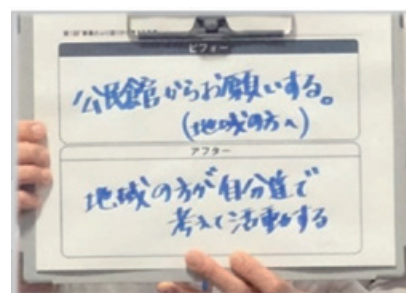 ビフォー
公民館からお願いする。
(地域の方へ)
アフター
地域の方が自分達で
考えて活動する